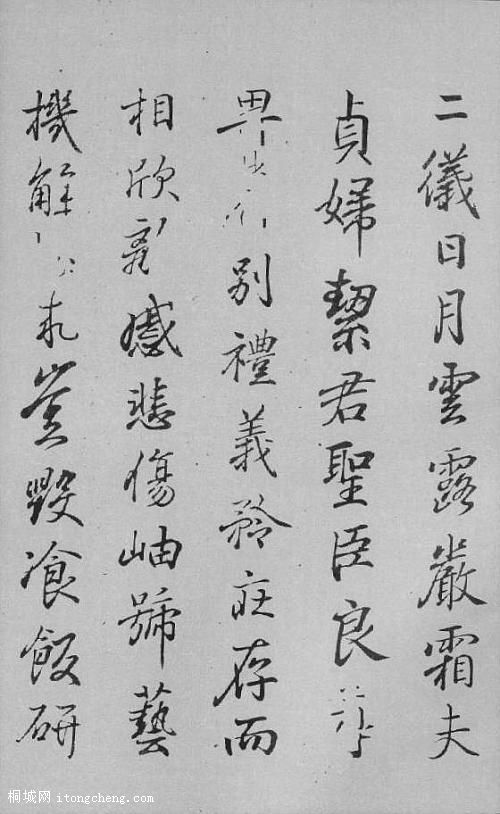 二儀日月雲露嚴霜夫
貞婦絜君聖臣良
別禮義矜莊存而
相欣悲傷岫號藝
機解豈毀飡飯研
桐城网 itongcheng.com